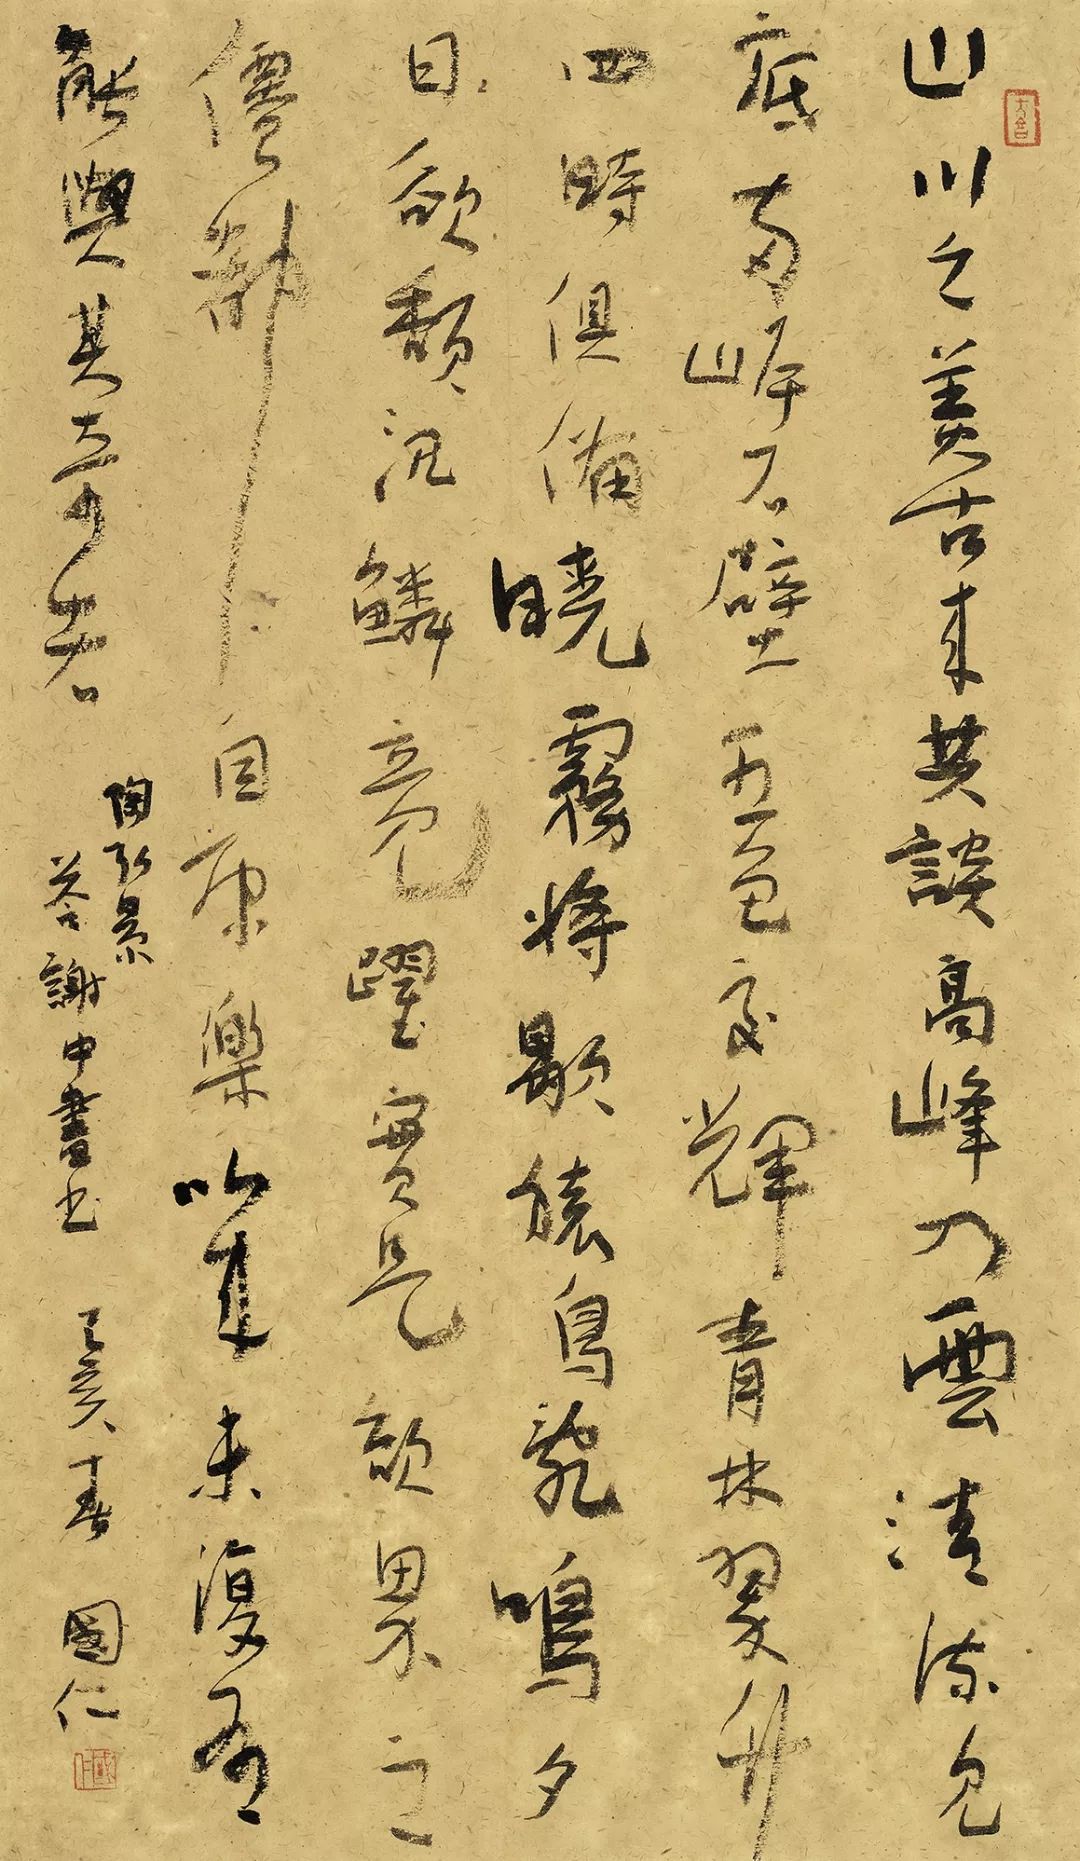 山川之美古来共談高峰入雲清流見
底两岸石壁五色交輝青林翠竹
四時俱備曉霧将歇猿鳥亂鳴夕
日欲頽沉鱗競躍實是欲界之
僊都自康樂以来未復有
能與其奇者
陶弘景
答謝中書书
己亥春 國仁